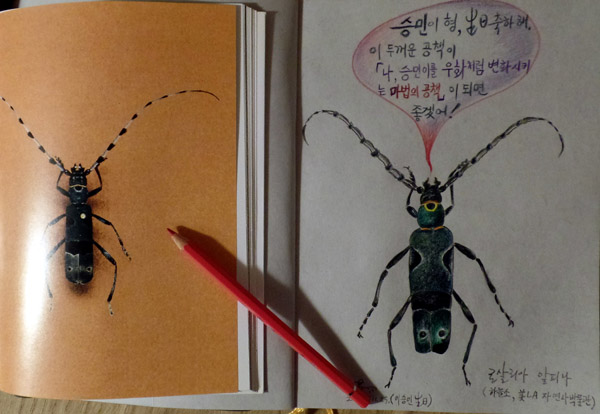 승민이 형, 生日축하해.
이 두꺼운 공책이
「나, 승민이를 우화처럼 변화시키
는 마법의 공책」이 되면
좋겠어!
로살리아 알피나
(하늘소, 美LA 자연사박물관)